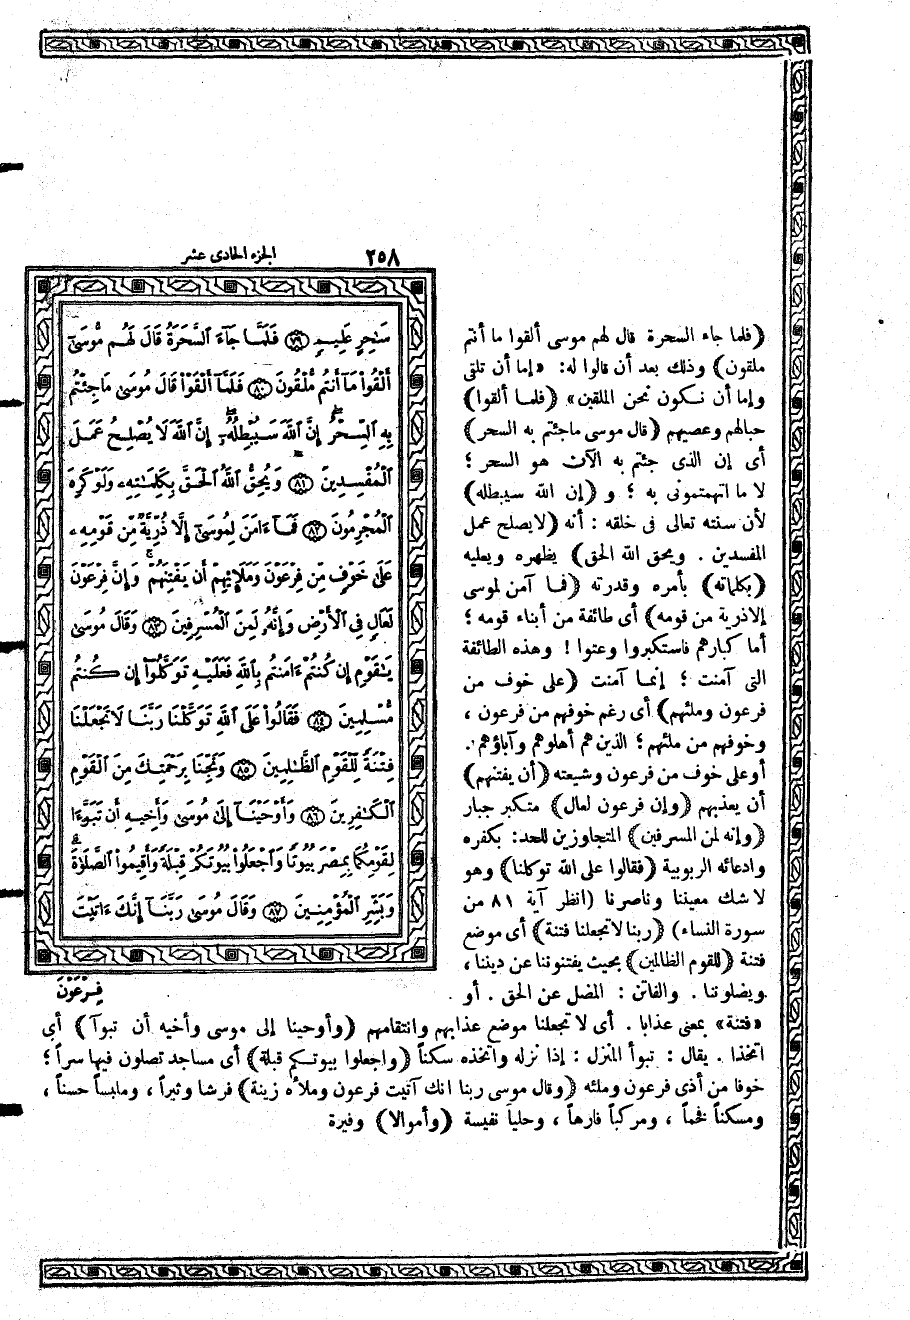 ٢٥٨
الجزء الحادى عشر
سَٰحِرٍ عَلِيمٍ ٧٩ فَلَمَّا جَآءَ ٱلسَّحَرَةُ قَالَ لَهُم مُّوسَىٰٓ
أَلْقُوا۟ مَآ أَنتُم مُّلْقُونَ ٨٠ فَلَمَّآ أَلْقَوْا۟ قَالَ مُوسَىٰ مَا جِئْتُم
بِهِ ٱلسِّحْرُ إِنَّ ٱللَّهَ سَيُبْطِلُهُۥٓ إِنَّ ٱللَّهَ لَا يُصْلِحُ عَمَلَ
ٱلْمُفْسِدِينَ ٨١ وَيُحِقُّ ٱللَّهُ ٱلْحَقَّ بِكَلِمَٰتِهِۦ وَلَوْ كَرِهَ
ٱلْمُجْرِمُونَ ٨٢ فَمَآ ءَامَنَ لِمُوسَىٰٓ إِلَّا ذُرِّيَّةٌ مِّن قَوْمِهِۦ
عَلَىٰ خَوْفٍ مِّن فِرْعَوْنَ وَمَلَإِي۟هِمْ أَن يَفْتِنَهُمْ وَإِنَّ فِرْعَوْنَ
لَعَالٍ فِى ٱلْأَرْضِ وَإِنَّهُۥ لَمِنَ ٱلْمُسْرِفِينَ ٨٣ وَقَالَ مُوسَىٰ
يَٰقَوْمِ إِن كُنتُمْ ءَامَنتُم بِٱللَّهِ فَعَلَيْهِ تَوَكَّلُوٓا۟ إِن كُنتُم
مُّسْلِمِينَ ٨٤ فَقَالُوا۟ عَلَى ٱللَّهِ تَوَكَّلْنَا رَبَّنَا لَا تَجْعَلْنَا
فِتْنَةً لِّلْقَوْمِ ٱلظَّٰلِمِينَ ٨٥ وَنَجِّنَا بِرَحْمَتِكَ مِنَ ٱلْقَوْمِ
ٱلْكَٰفِرِينَ ٨٦ وَأَوْحَيْنَآ إِلَىٰ مُوسَىٰ وَأَخِيهِ أَن تَبَوَّءَا
لِقَوْمِكُمَا بِمِصْرَ بُيُوتًا وَٱجْعَلُوا۟ بُيُوتَكُمْ قِبْلَةً وَأَقِيمُوا۟ ٱلصَّلَوٰةَ
وَبَشِّرِ ٱلْمُؤْمِنِينَ ٨٧ وَقَالَ مُوسَىٰ رَبَّنَآ إِنَّكَ ءَاتَيْتَ
فِرْعَوْنَ
(فلما جاء السحرة قال لهم موسى ألقوا ما أنتم
ملقون) وذلك بعد أن قالوا له: «إما أن تلقى
وإما أن نكون نحن الملقين» (فلما ألقوا)
حبالهم وعصيهم (قال موسى ماجئتم به السحر)
أى إن الذى جئتم به الآن هو السحر ؛
لا ما اتهمتمونى به ؛ و (إن الله سيبطله)
لأن سنته تعالى فى خلقه : أنه (لايصلح عمل
المفسدين . ويحق الله الحق) يظهره ويعليه
(بكلماته) بأمره وقدرته (فما آمن لموسى
إلاذرية من قومه) أى طائفة من أبناء قومه ؛
أما كبارهم فاستكبروا وعتوا ! وهذه الطائفة
التى آمنت ؛ إنما آمنت (على خوف من
فرعون وملئهم) أى رغم خوفهم من فرعون ،
وخوفهم من ملئهم ؛ الذين هم أهلوهم وآباؤهم .
أوعلى خوف من فرعون وشيعته (أن يفتنهم)
أن يعذبهم (وإن فرعون لعال) متكبر جبار
(وإنه لمن المسرفين) المتجاوزين للحد: بكفره
وادعائه الربوبية (فقالوا على الله توكلنا) وهو
لا شك معيننا وناصرنا (انظر آية ٨١ من
سورة النساء) (ربنا لاتجعلنا فتنة) أى موضع
فتنة (للقوم الظالمين) بحيث يفتنوننا عن ديننا ،
ويضلوننا . والفاتن : المضل عن الحق . أو
«فتنة» بمعنى عذابا . أى لا تجعلنا موضع عذابهم وانتقامهم (وأوحينا إلى موسى وأخيه أن تبوآ) أى
اتخذا . يقال : تبوأ المنزل : إذا نزله واتخذه سكناً (واجعلوا بيوتكم قبلة) أى مساجد تصلون فيها سراً ؛
خوفا من أذى فرعون وملئه (وقال موسى ربنا انك آتيت فرعون وملأه زينة) فرشا وثيراً ، وملبساً حسناً ،
ومسكناً فخماً ، ومركباً فارهاً ، وحلياً نفيسة (وأموالا) وفيرة